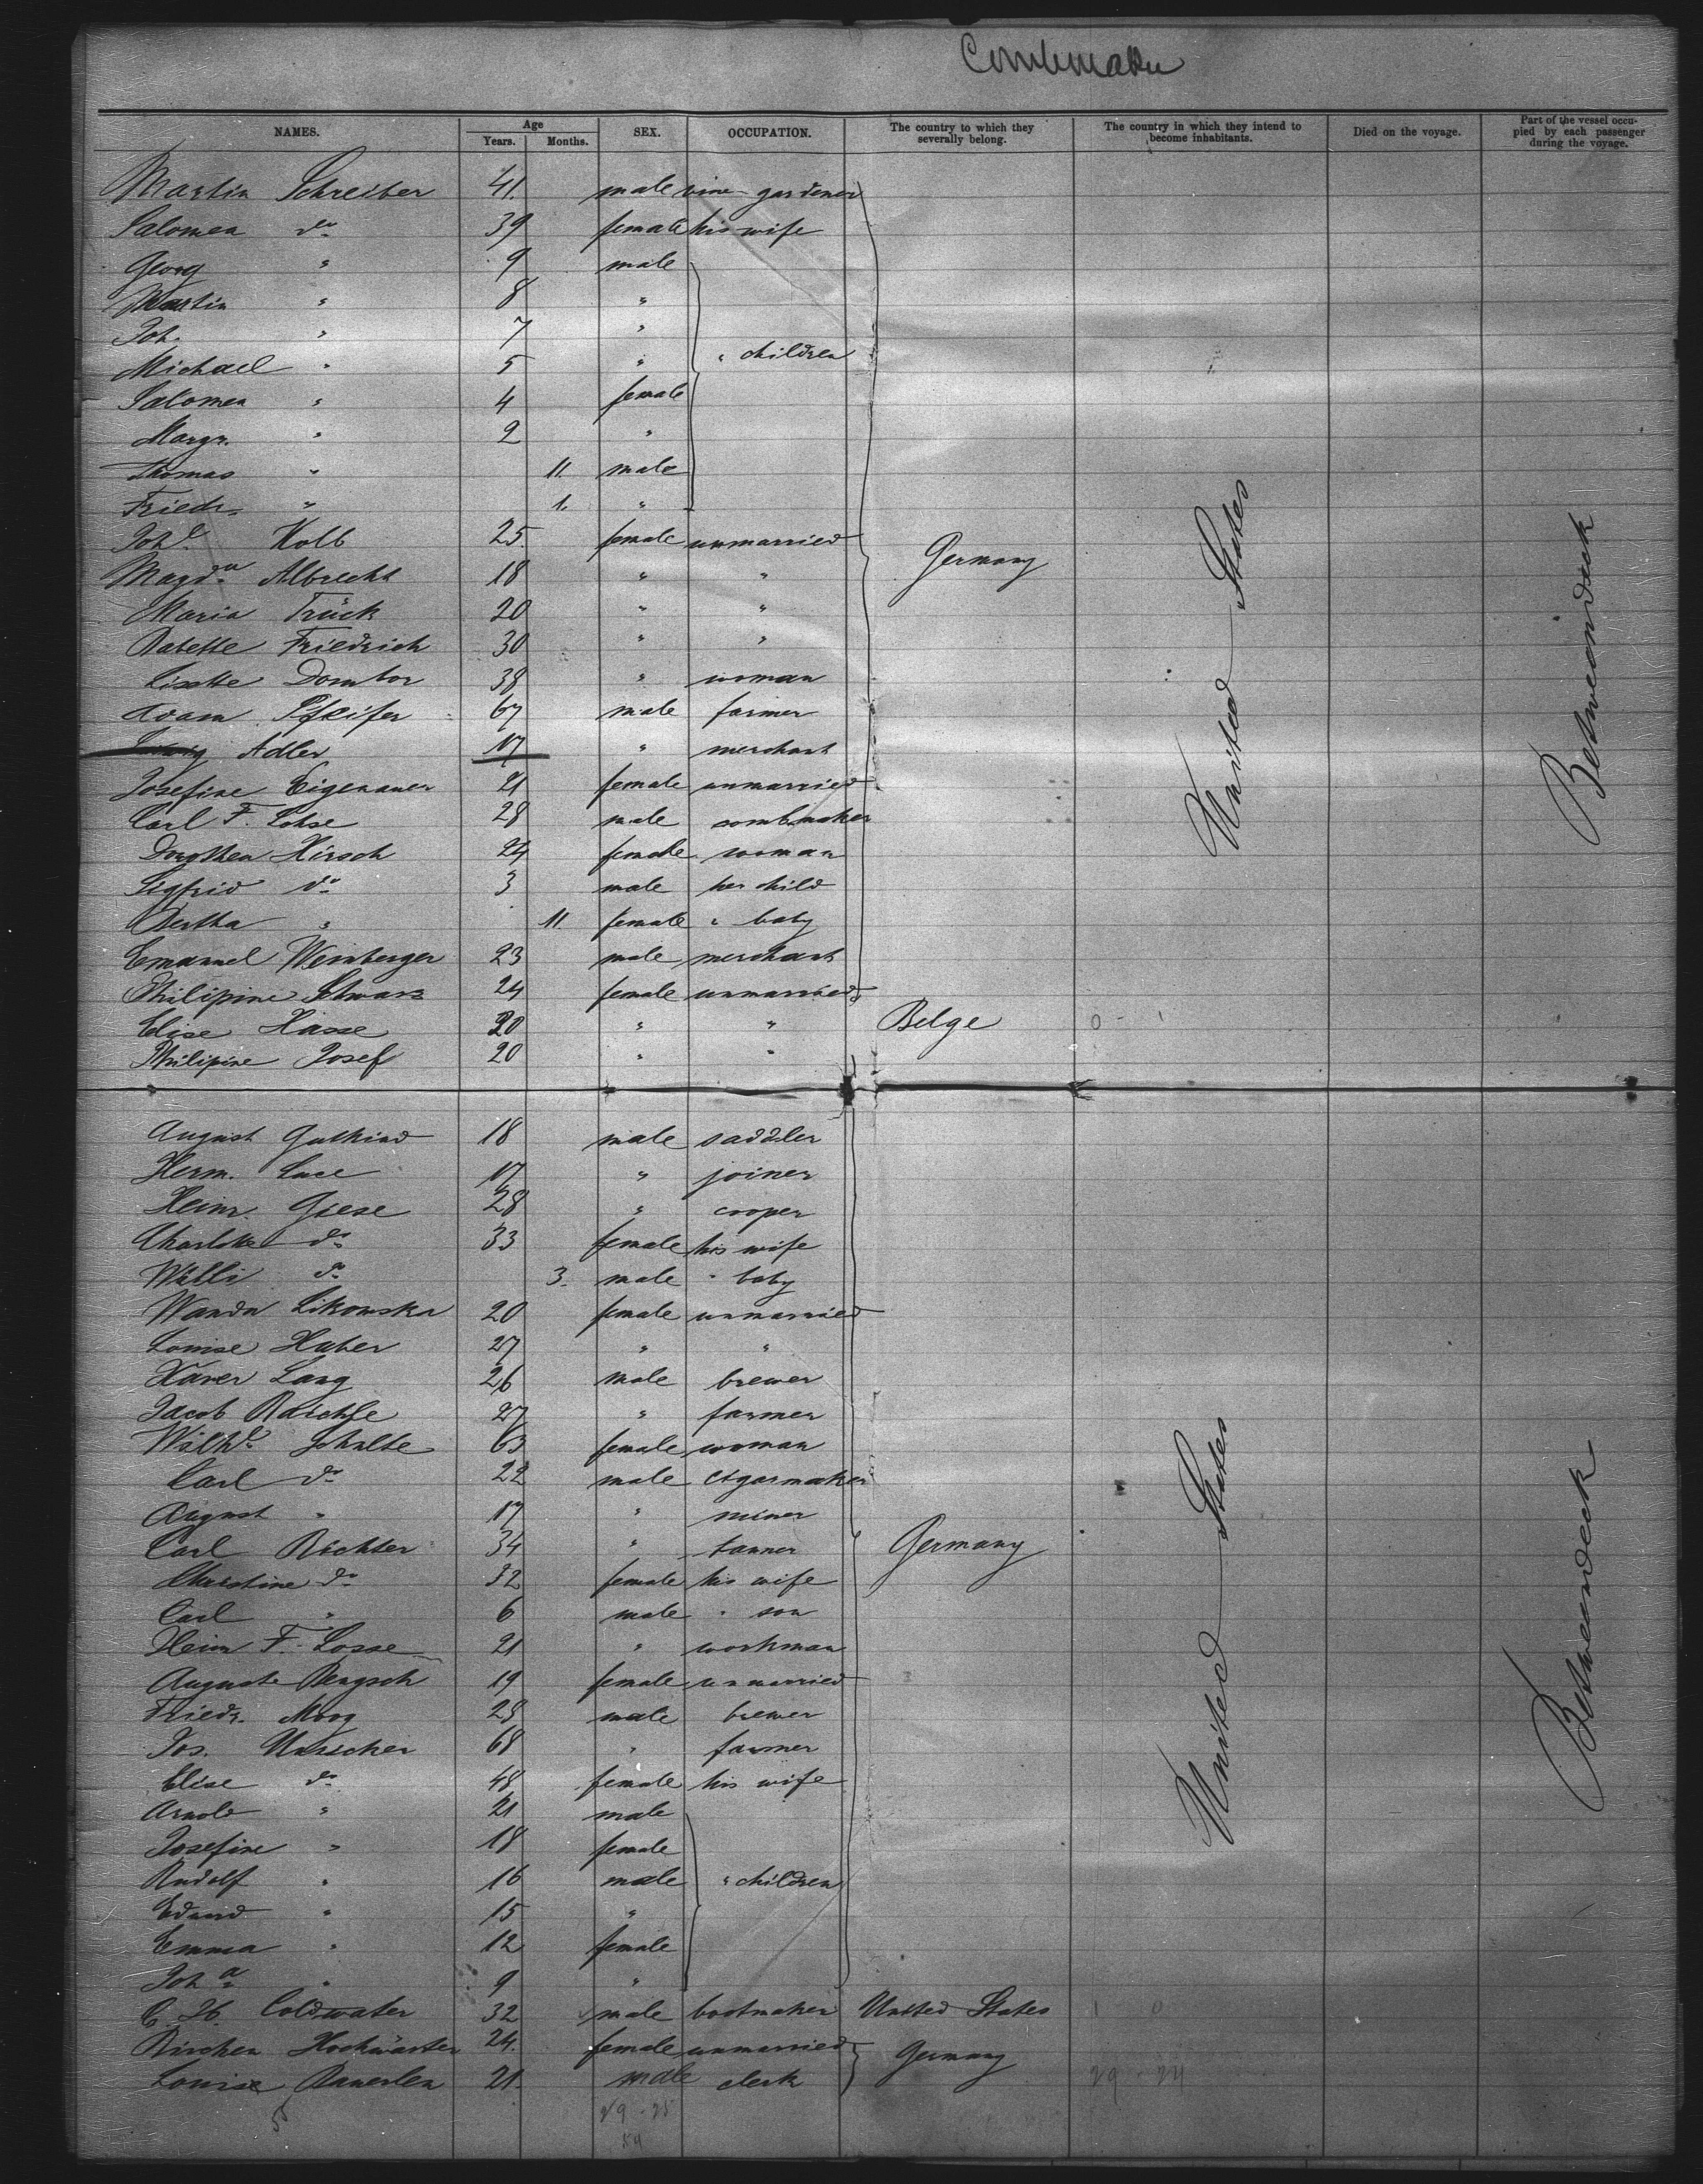 Combmaker
NAMES. Age Years. Months. SEX. OCCUPATION. The country to which they severally belong. The country in which they intend to become inhabitants. Died on the voyage. Part of the vessel occupied by each passenger during the voyage.
Martin Schreiber 41. male vine-gardener
Salomea do 39 female his wife
Georg " 9 male
Martin " 8 "
Joh. " 7 "
Michael " 5 " " children
Salomea " 4 female
Margr. " 2 "
Thomas " 11. male
Friedr. " 1. "
Johe Kolb 25. female unmarried Germany United States Betweendeck
Magda Albrecht 18 " "
Maria Trück 20 " "
Babette Friedrich 30 " "
Lisette Dombor 38 " woman
Adam Pfeifer 67 male farmer
Adler 17 " merchant
Josefine Eigenauer 21 female unmarried
Carl F. Lohse 28 male combmaker
Dorothea Hirsch 24 female woman
Sigfrid do 3 male her child
Bertha " 11. female " baby
Emanuel Weinberger 23 male merchant
Philipine Schwarz 24 female unmarried
Elise Hasse 20 " " Belge 0 - 1
Philipine Josef 20 " "
August Gutkind 18 male saddler
Herm. Luce 17 " joiner
Heinr. Giese 28 " cooper
Charlotte do 33 female his wife
Willi do 3. male " baby
Wanda Likowska 20 female unmarried
Louise Huber 27 " "
Xaver Lang 26 male brewer
Jacob Raichle 27 " farmer
Wilhe Schulte 63 female woman
Carl do 22 male cigarmaker
August " 17 " miner
Carl Richter 34 " tanner Germany United States Betweendeck
Christine do 32 female his wife
Carl " 6 male " son
Heinr F. Losse 21 " workman
Auguste Bergsch 19 female unmarried
Friedr. Moog 28 male brewer
Jos. 68 " farmer
Elise do 48 female his wife
Arnold " 21 male
Josefine " 18 female
Rudolf " 16 male " children
Eduard " 15 "
Emma " 12 female
Joha " 9 "
C. H. Coldwater 32 male bootmaker United States 1 0
Birchen Hochwärter 24. female unmarried Germany
Louise Bauerlen 21. male clerk 29 - 24
55 29 - 25
54